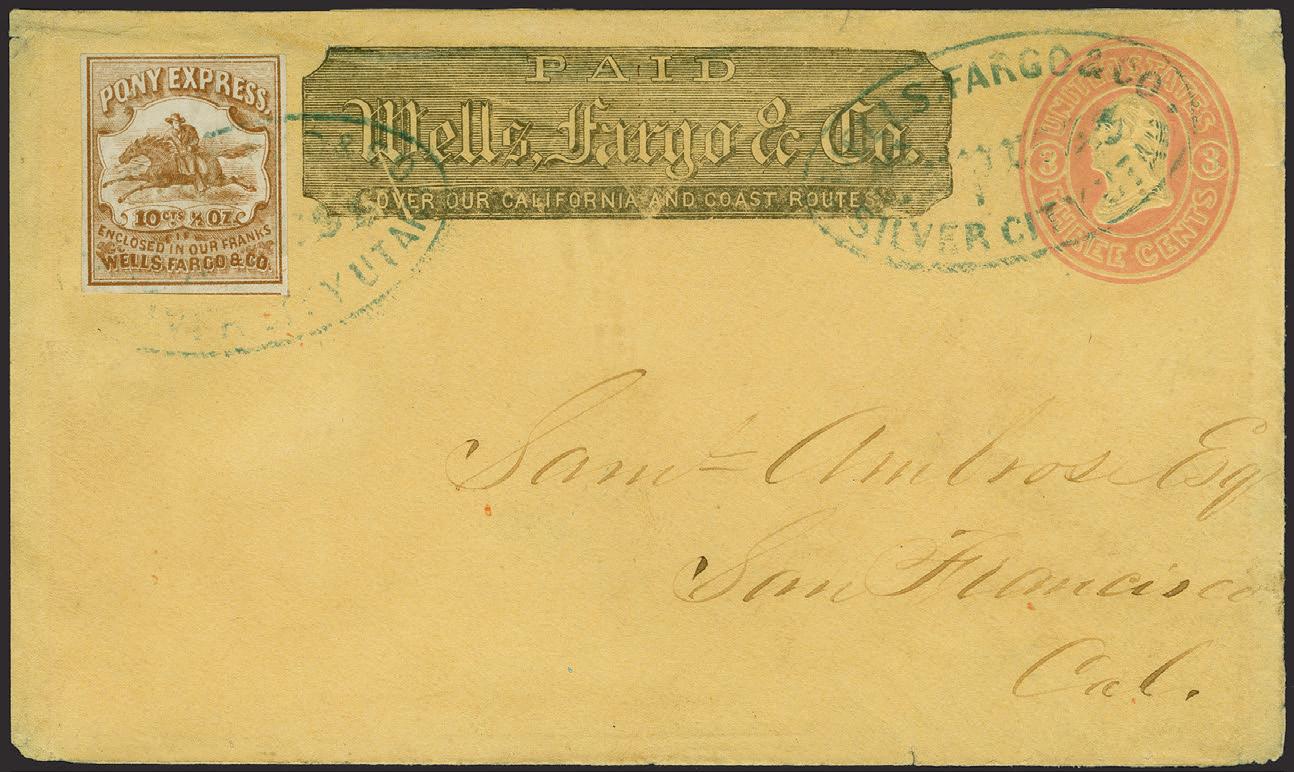 PONY EXPRESS.
10 CTS ½ OZ.
IF
ENCLOSED IN OUR FRANKS
WELLS, FARGO & CO.
PAID
Wells, Fargo & Co.
OVER OUR CALIFORNIA AND COAST ROUTES.
WELLS, FARGO & CO.
SILVER CITY
UTAH
UNITED STATES
3 3
THREE CENTS
Saml Ambrose Esq
San Francisco
Cal.